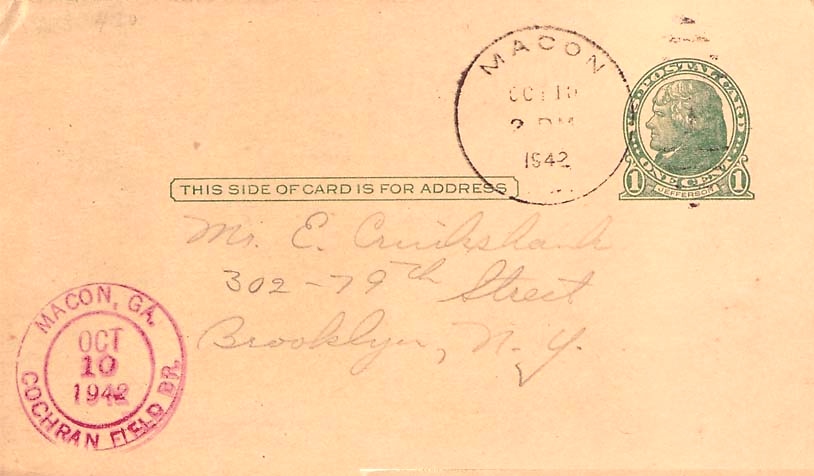 MACON
OCT 10
2 PM
1942
U.S. POSTAL CARD
ONE CENT
1 JEFFERSON 1
THIS SIDE OF CARD IS FOR ADDRESS
Mr. E. Cruikshank
302-79th Street
Brooklyn, N.Y.
MACON, GA.
OCT
10
1942
COCHRAN FIELD BR.